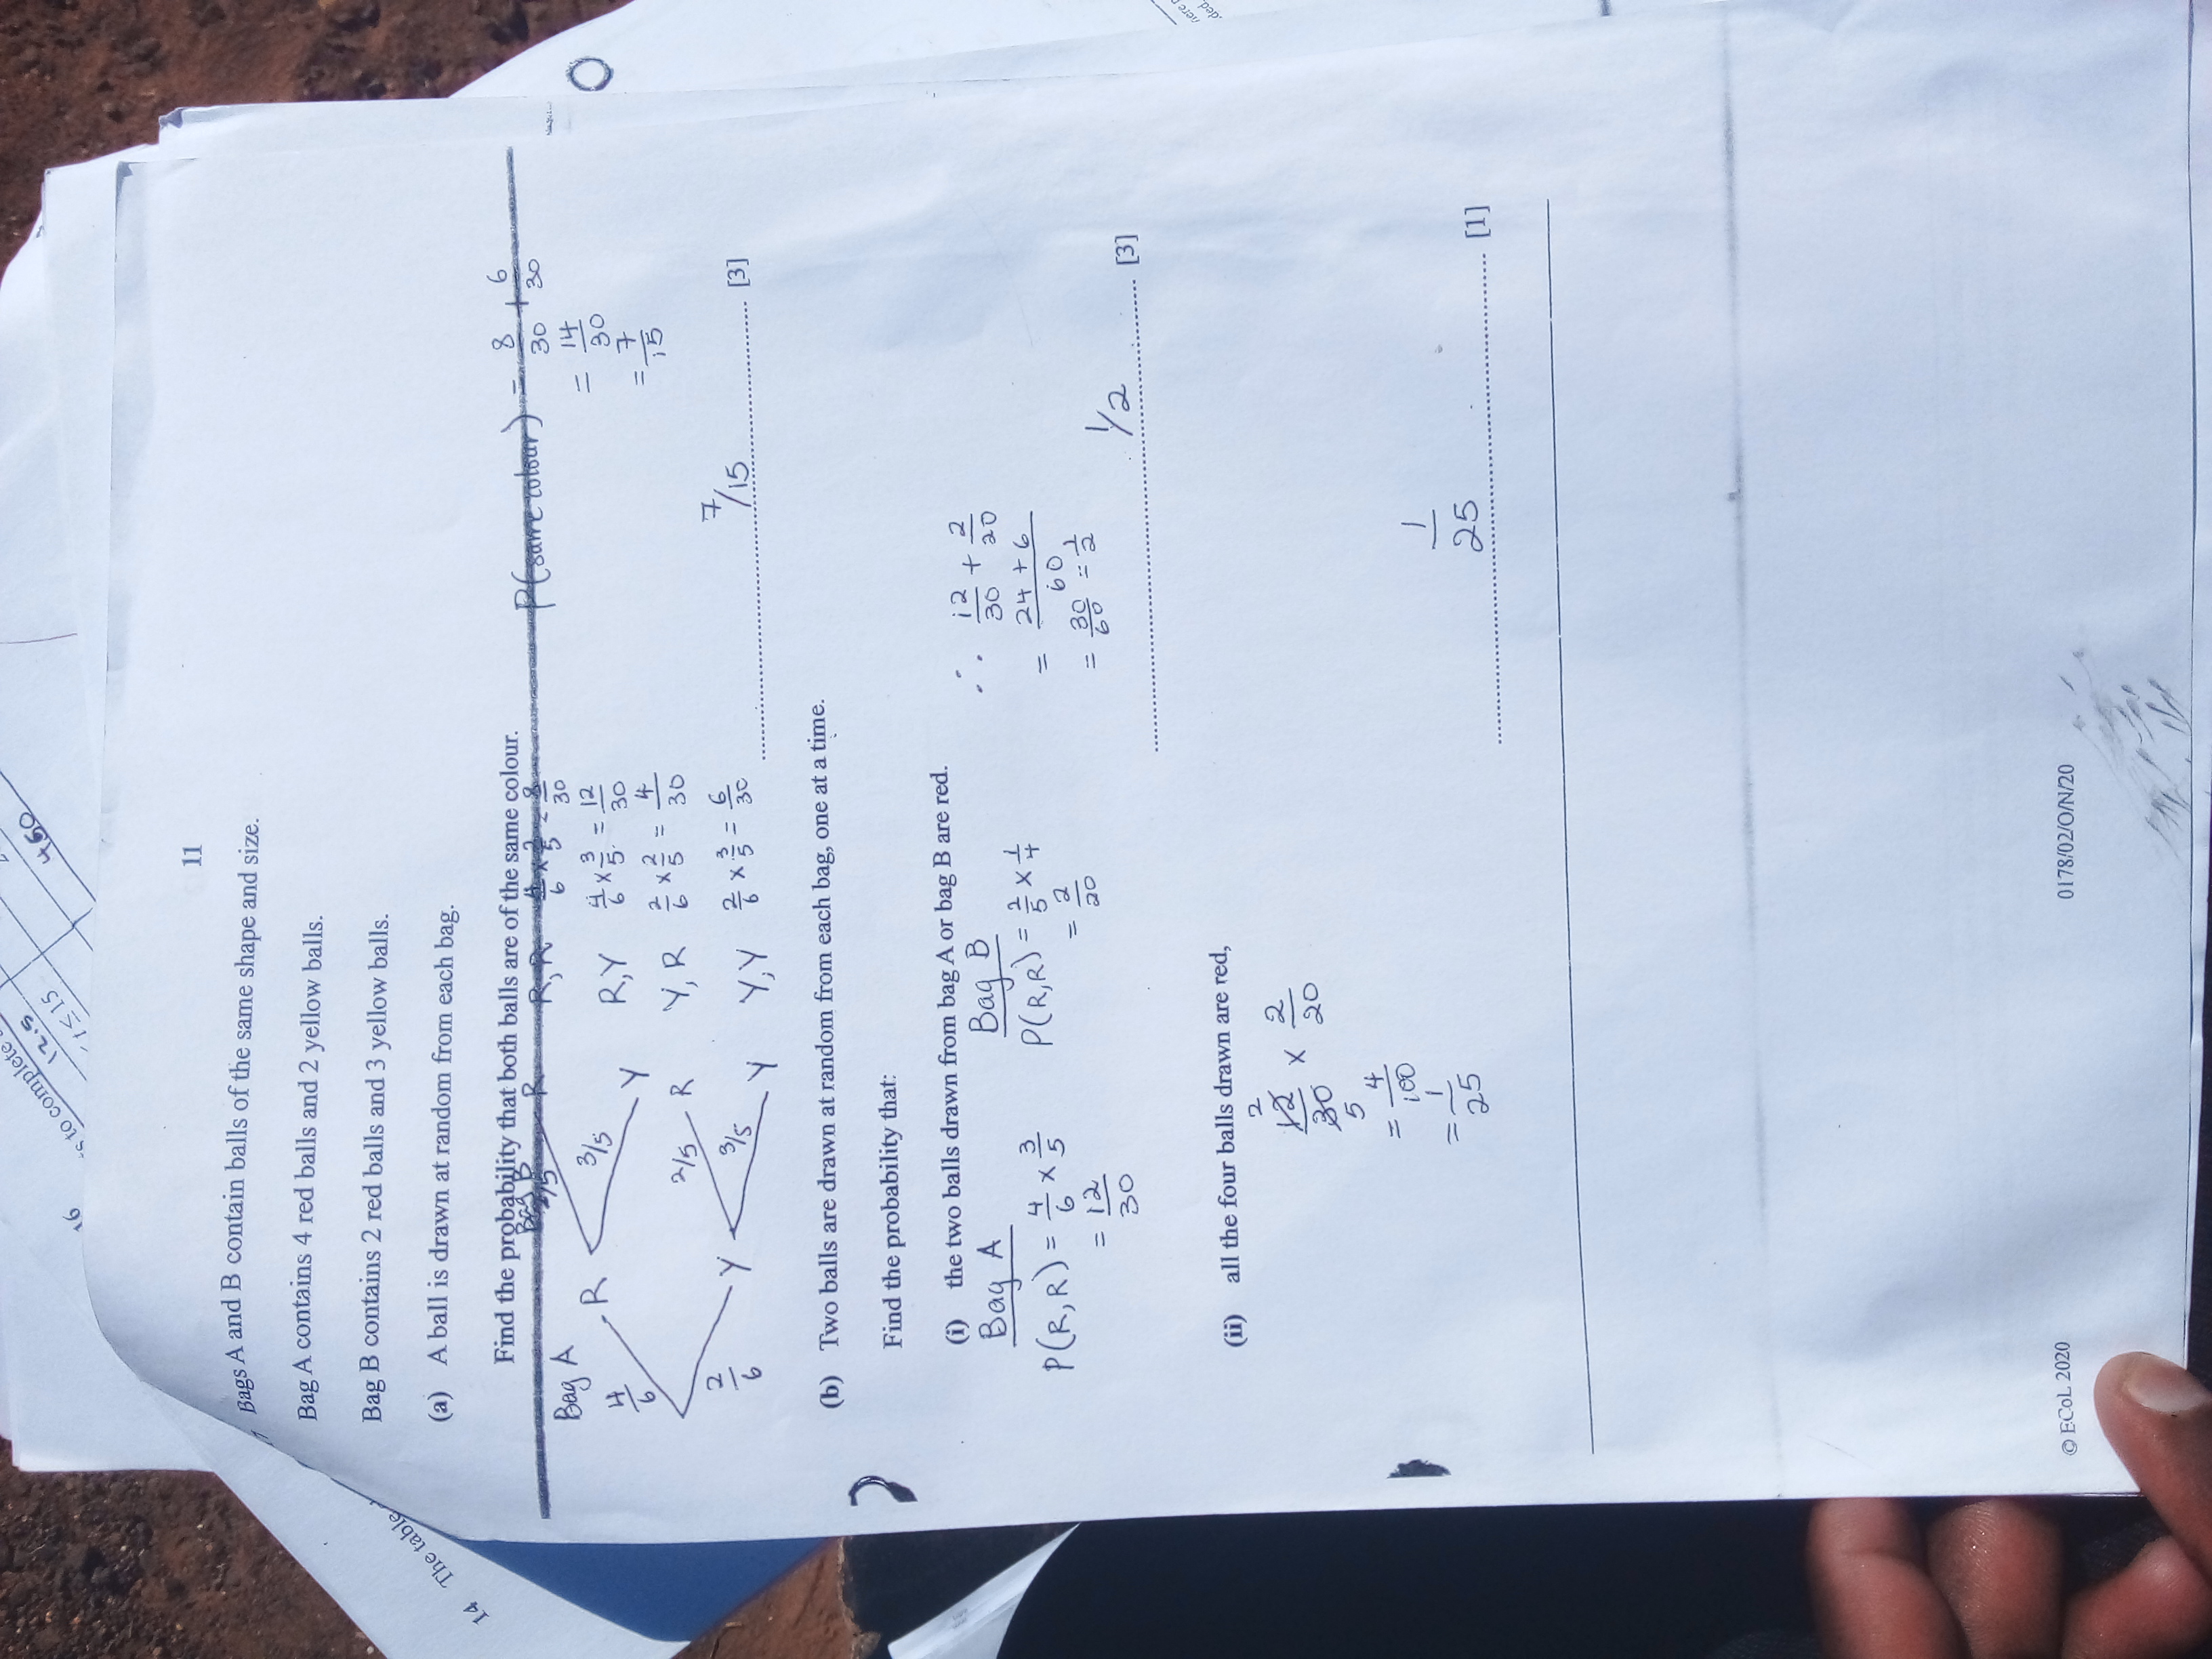 16
s to complete
12.5
t ≤ 15
460
14 The table
11
Bags A and B contain balls of the same shape and size.
Bag A contains 4 red balls and 2 yellow balls.
Bag B contains 2 red balls and 3 yellow balls.
(a) A ball is drawn at random from each bag.
Find the probability that both balls are of the same colour.
Bag A
Bag B
4/6 R 2/5 R R, R 4/6 × 2/5 = 8/30
3/5 Y R,Y 4/6 × 3/5 = 12/30
2/6 Y 2/5 R Y, R 2/6 × 2/5 = 4/30
3/5 Y Y,Y 2/6 × 3/5 = 6/30
P(same colour) = 8/30 + 6/30
= 14/30
= 7/15
7/15 [3]
(b) Two balls are drawn at random from each bag, one at a time.
Find the probability that:
(i) the two balls drawn from bag A or bag B are red.
Bag A
P(R,R) = 4/6 × 3/5
= 12/30
Bag B
P(R,R) = 2/5 × 1/4
= 2/20
∴ 12/30 + 2/20
= 24 + 6 / 60
= 30/60 = 1/2
1/2 [3]
(ii) all the four balls drawn are red,
2
12/30 × 2/20
5
= 4/100
= 1/25
1/25 [1]
© ECoL 2020
0178/02/O/N/20